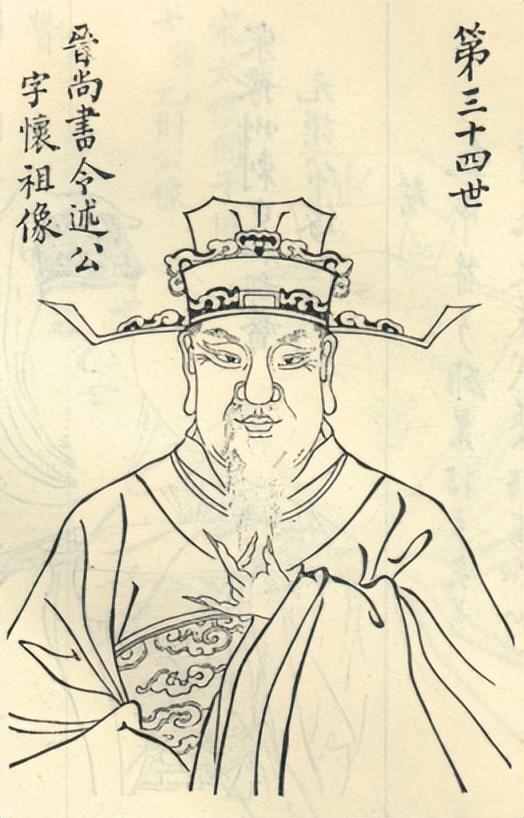 第三十四世
晉尚書令述公
字懷祖像